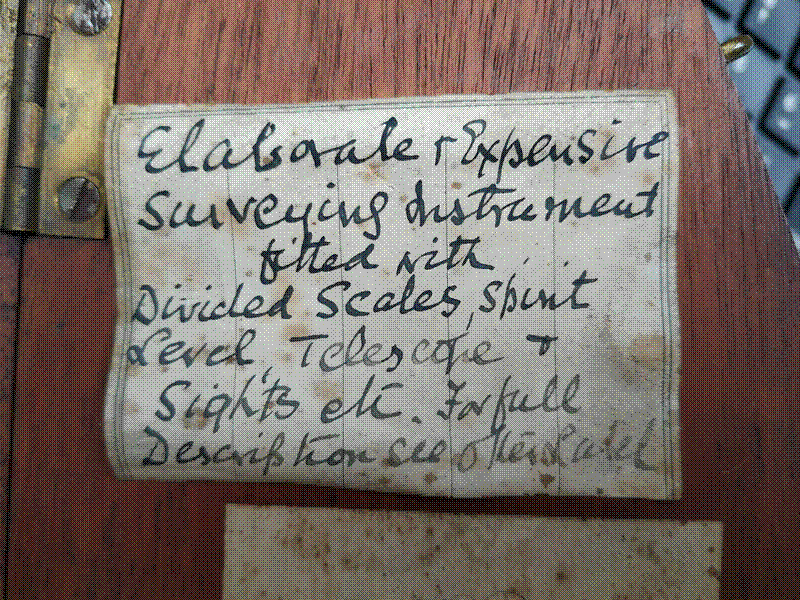 Elaborate & Expensive
Surveying Instrument
fitted with
Divided Scales, Spirit
Level, Telescope &
Sights etc. For full
Description see other Label